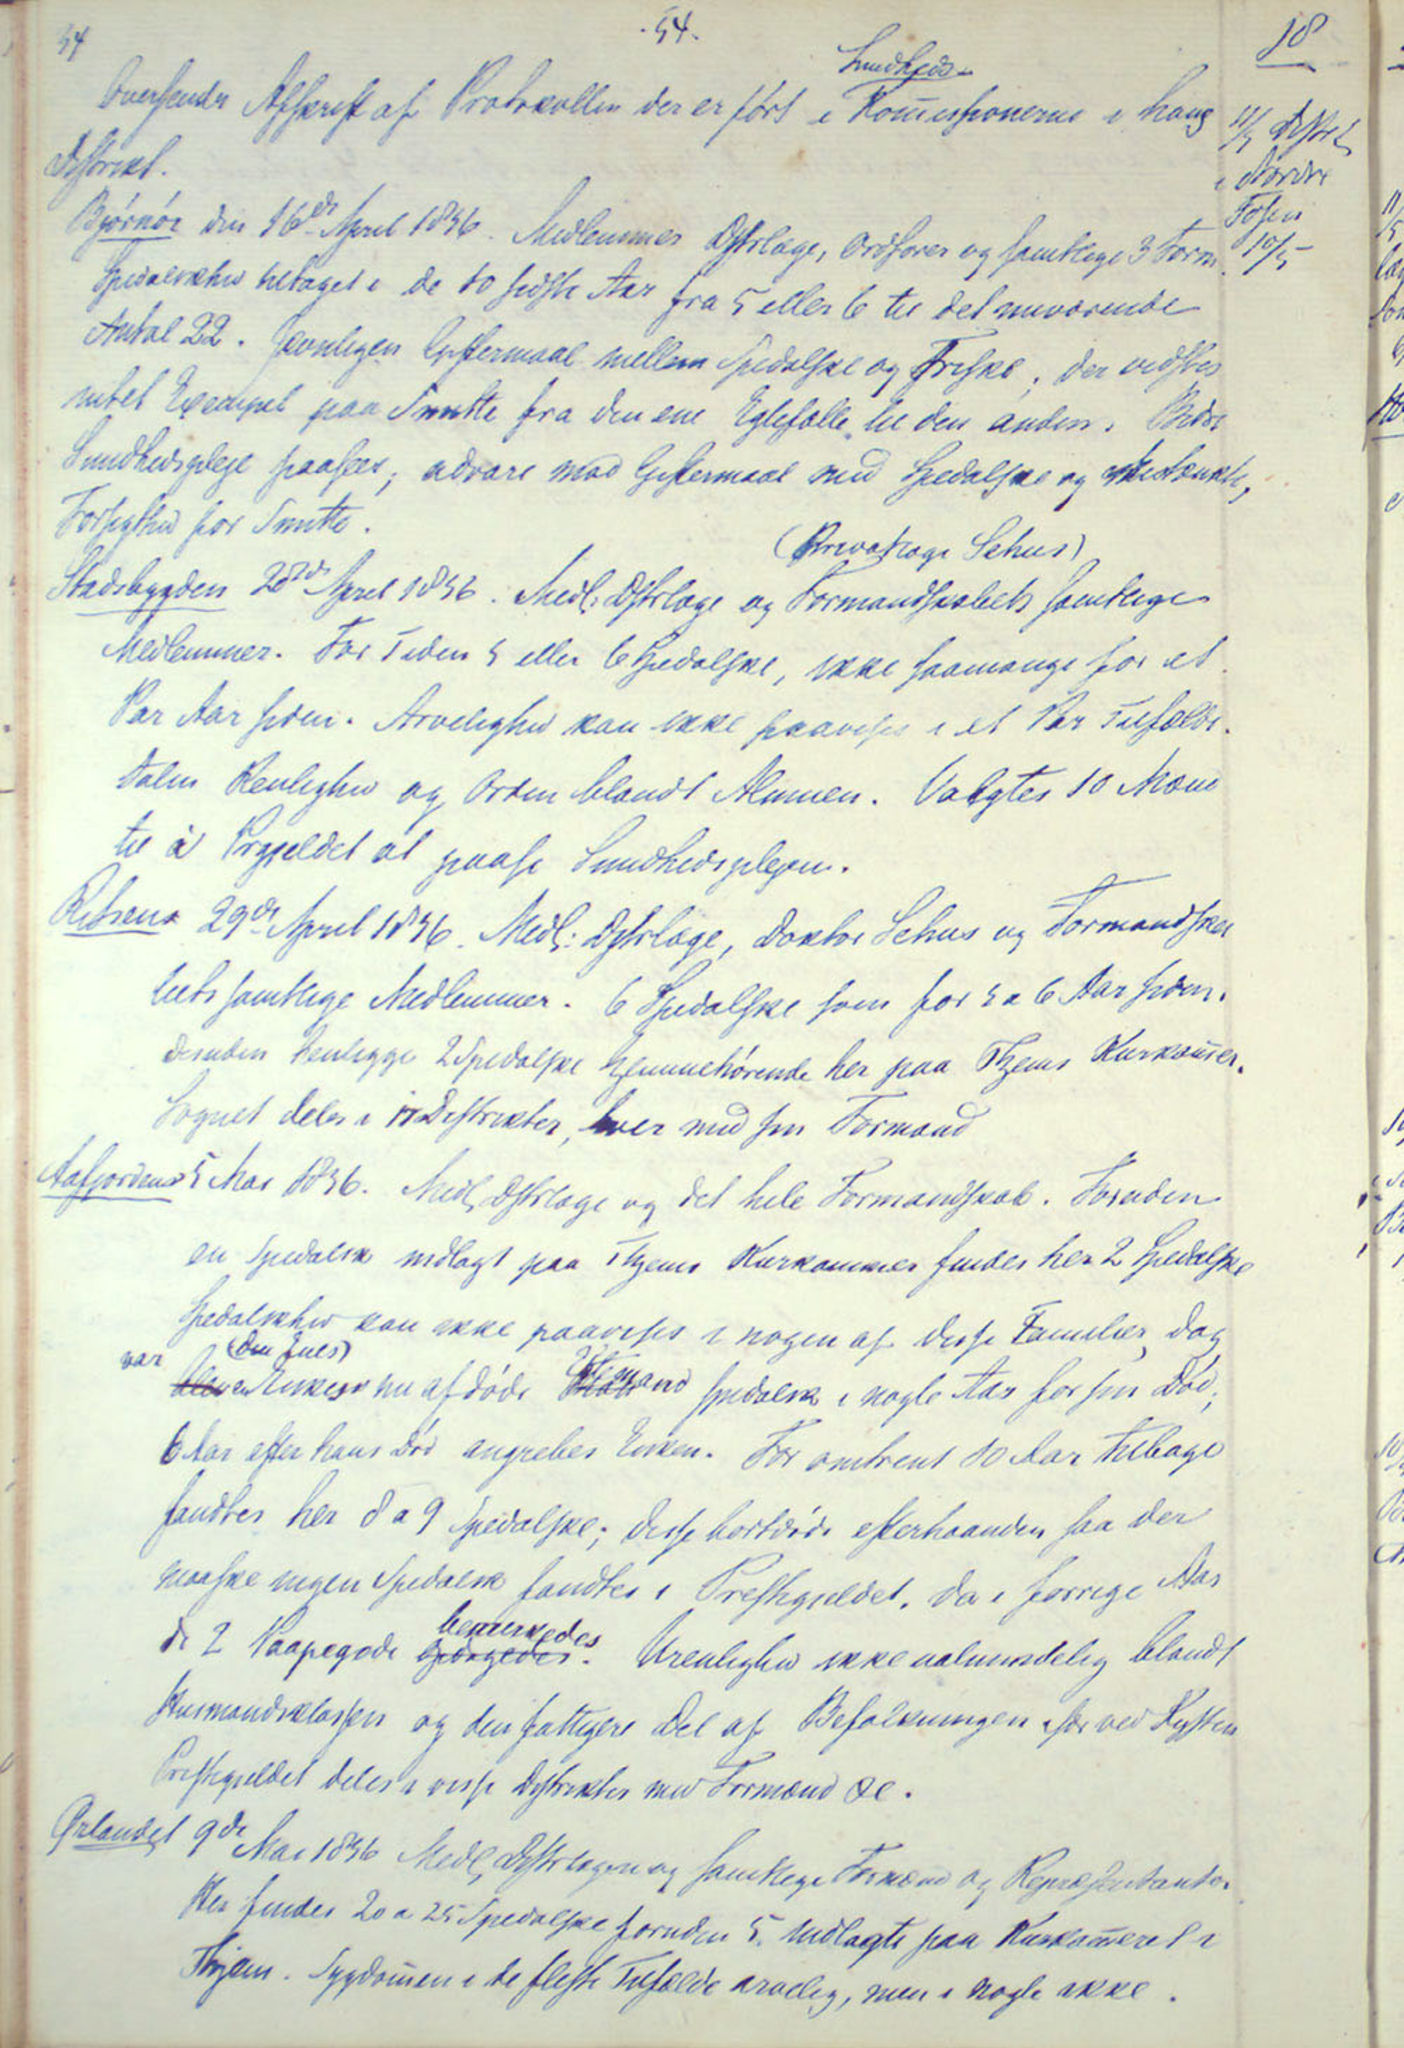 54
.54.
18
Sundheds-
Oversender Afskrift af Protokollen der er ført i Kom̄issionerne i hans
Distrikt.
11/5 Distrl
i Nordre
Fosen
10/5
Bjørnør den 16de April 1856. Medlemmer Dstrlæge, Ordfører og samtlige 3 Form.
Spedalskhed tiltaget i de 10 sidste Aar fra 5 eller 6 til det nuværende
Antal 22. Jevnligen Egtermaal mellem Spedalske og Friske; der vidstes
intet Exempel paa Smitte fra den ene Egtefælle til den anden. Bedre
Sundhedspleje paasees; advare mod Giftermaal med Spedalske og Mistænkte,
Forsigthed for Smitte.
(Privatlæge Sehus)
Stadsbygden 28de April 1856. Medl: Dstrlæge og Formandskabets samtlige
Medlemmer. For Tiden 5 eller 6 Spedalske, ikke saamange for et
Par Aar siden. Arvelighed kan ikke paavises i et Par Tilfælde.
Talen Renlighed og Orden blandt Almuen. Valgtes 10 Mænd
til i Prgjeldet at paase Sundhedsplejen.
Rissen 29de April 1856. Medl: Dstrlæge, Doktor Sehus og Formandska
bets samtlige Medlemmer. 6 Spedalske som for 5 a 6 Aar siden.
desuden henligge 2 Spedalske hjemmehørende her paa Thjems Kurkam̄er.
Sognet deles i Distrikter, hver med sin Formand
Aafjorden 5 Mai 1856. Medl, Dstrlæge og det hele Formandskab. Foruden
en Spedalsk indlagt paa Thjems Kurkammer findes her 2 Spedalske
Spedalskhed kan ikke paavises i nogen af disse Familier, dog
var (den Enes)
blev Enkes nu afdøde Mand spedalsk i nogle Aar før sin Død;
6 Aar efter hans Død angrebes Enken. For omtrent 10 Aar tilbage
fandtes her 8 a 9 Spedalske; disse bortdøde efterhaanden saa der
maaske ingen Spedalsk fandtes i Prestegjeldet, da i forrige Aar
bemerkedes
de 2 Paapegede. Urenlighed ikke ualmindelig blandt
Husmandsklassen og den fattigere Del af Befolkningen især ved Kysten
Prestegjeldet deles i visse Distrikter med Formænd &c.
Ørlandet 9de Mai 1856 Medl, Distrlægen og samtlige Formænd og Repræsentanter.
Her findes 20 a 25 Spedalske foruden 5 Indlagte paa Kurkam̄eret i
Thjem. Sygdom̄en i de fleste Tilfælde arvelig, men i nogle ikke.